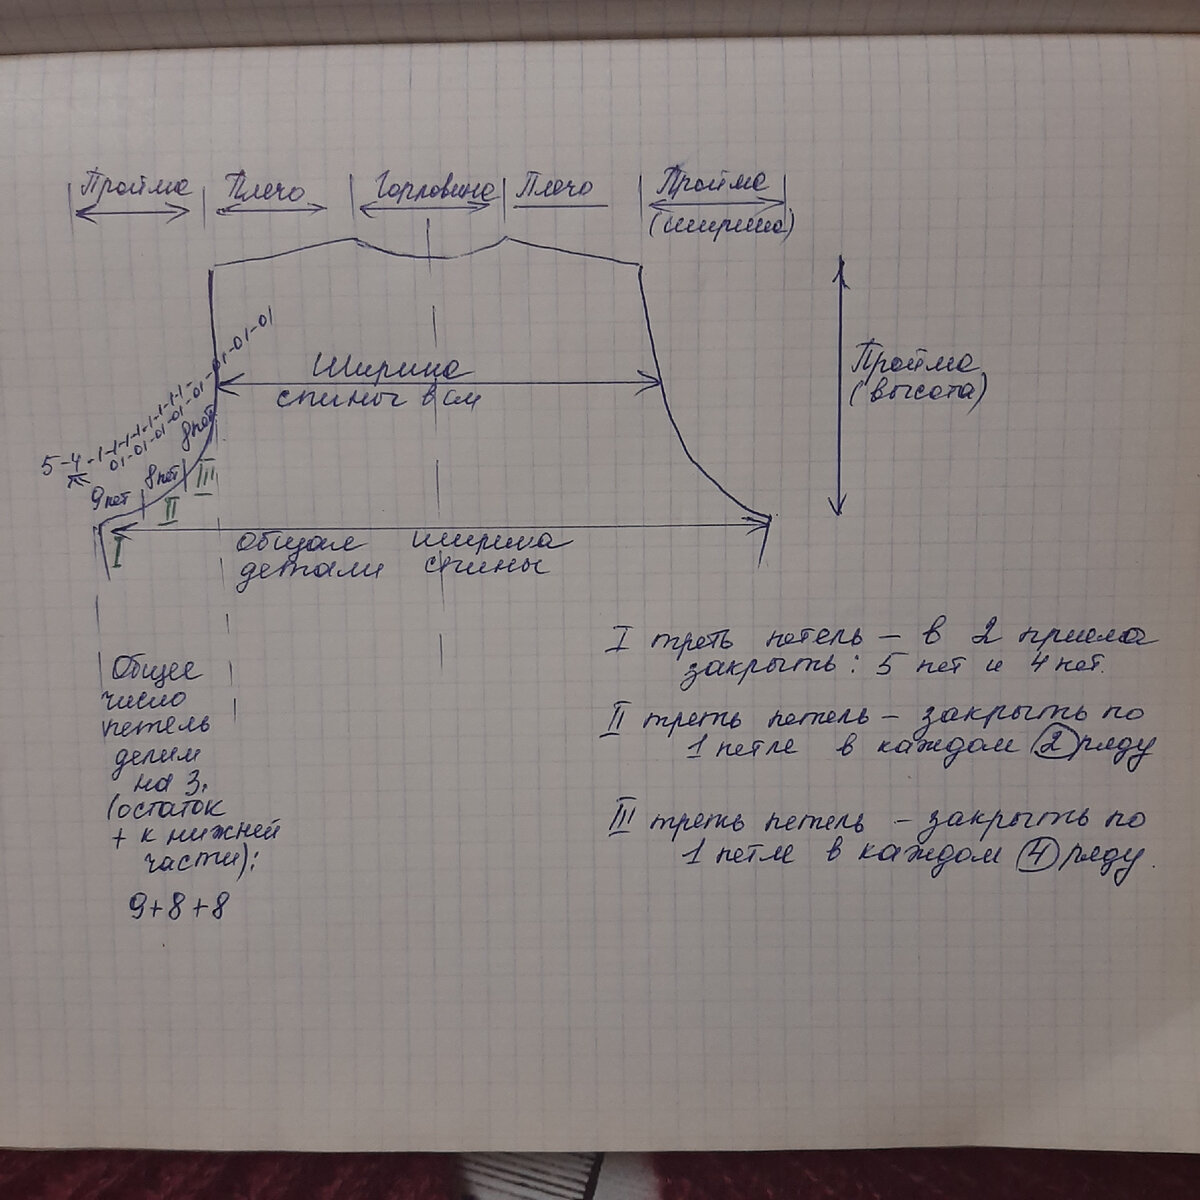 Пройма Плечо Горловина Плечо Пройма
(ширина)
Ширина
спины в см
Пройма
(высота)
5-4-1-1-1-1-1-1-1-1-
01-01-01-01-01-01-01-01
9 пет 8 пет 8 пет
I II III
Общая ширина
детали спины
Общее
число
петель
делим
на 3.
(остаток
+ к нижней
части):
9+8+8
I треть петель – в 2 приема
закрыть: 5 пет и 4 пет.
II треть петель – закрыть по
1 петле в каждом 2 ряду
III треть петель – закрыть по
1 петле в каждом 4 ряду.